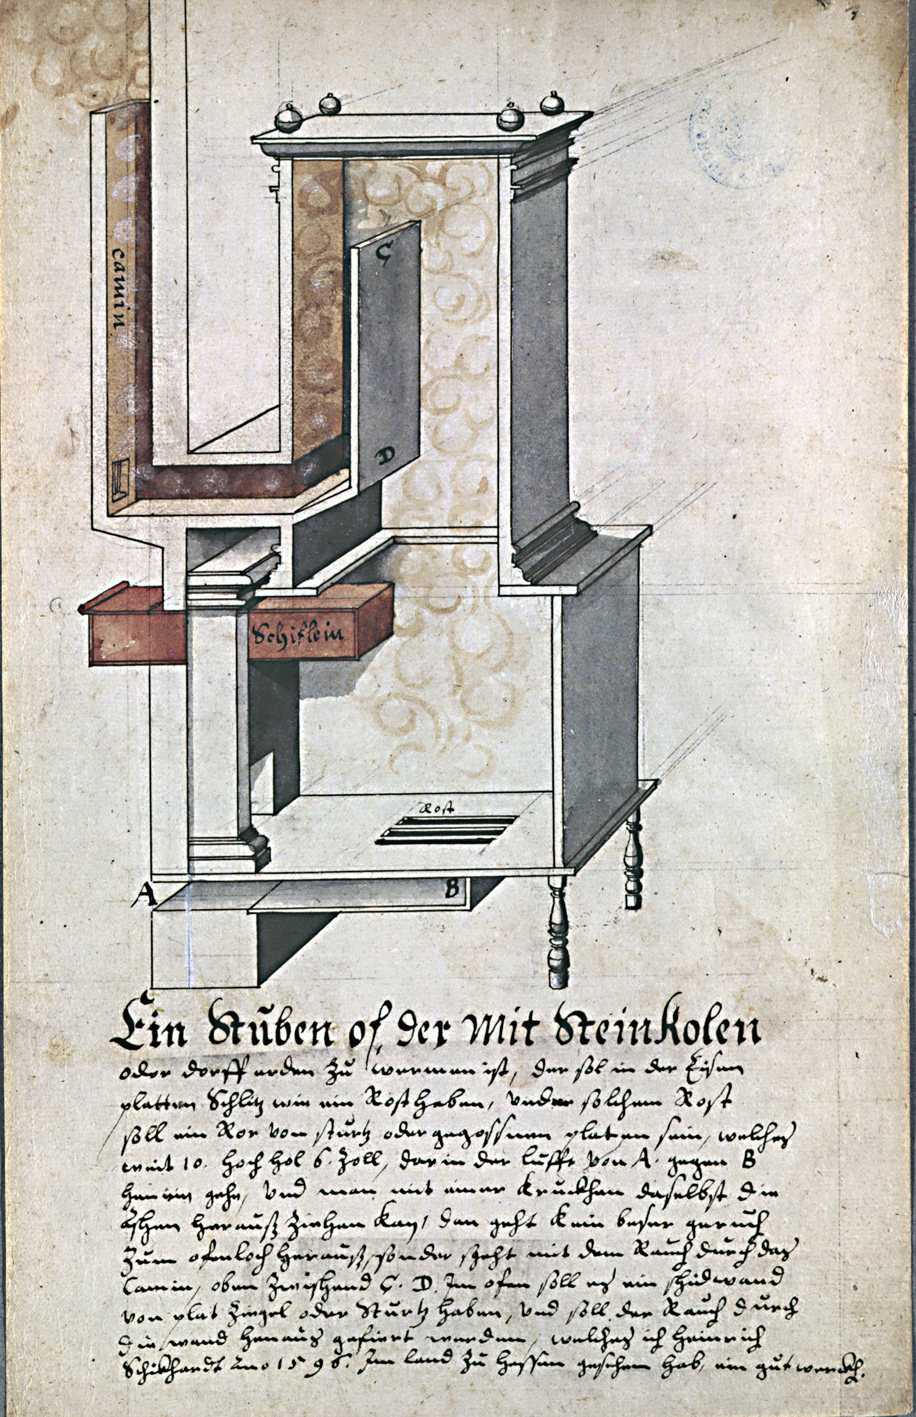 camin
C
D
Schiflein
Rost
A
B
Ein Stuben of der Mit Steinkolen
oder dorff erden zu wermen ist, der sol in der Eisen
platten Schlitz wie ein Rost haben, under solchem Rost
soll ein Ror von sturtz oder gegossnen platen sein, welches
weit 10. hoch hol 6. Zoll, darin der lufft von A. gegen B
hinein gehe, und man mit einer kruckhen daselbst die
Eshen herauß ziehen kan, dan geht kein beser geruch
zum ofenloch herauß, sonder zeht mit dem Rauch durch das
Camin, oben zwishend C. D. Im ofen soll es ein shidwand
von plat ziegel oder Sturtz haben, und soll der Rauch durch
die wand henaus gefiert werden, welches ich Heinrich
Schikhardt Ano 1596. Im land zu Hessen gesehen hab, ein gut werckh.